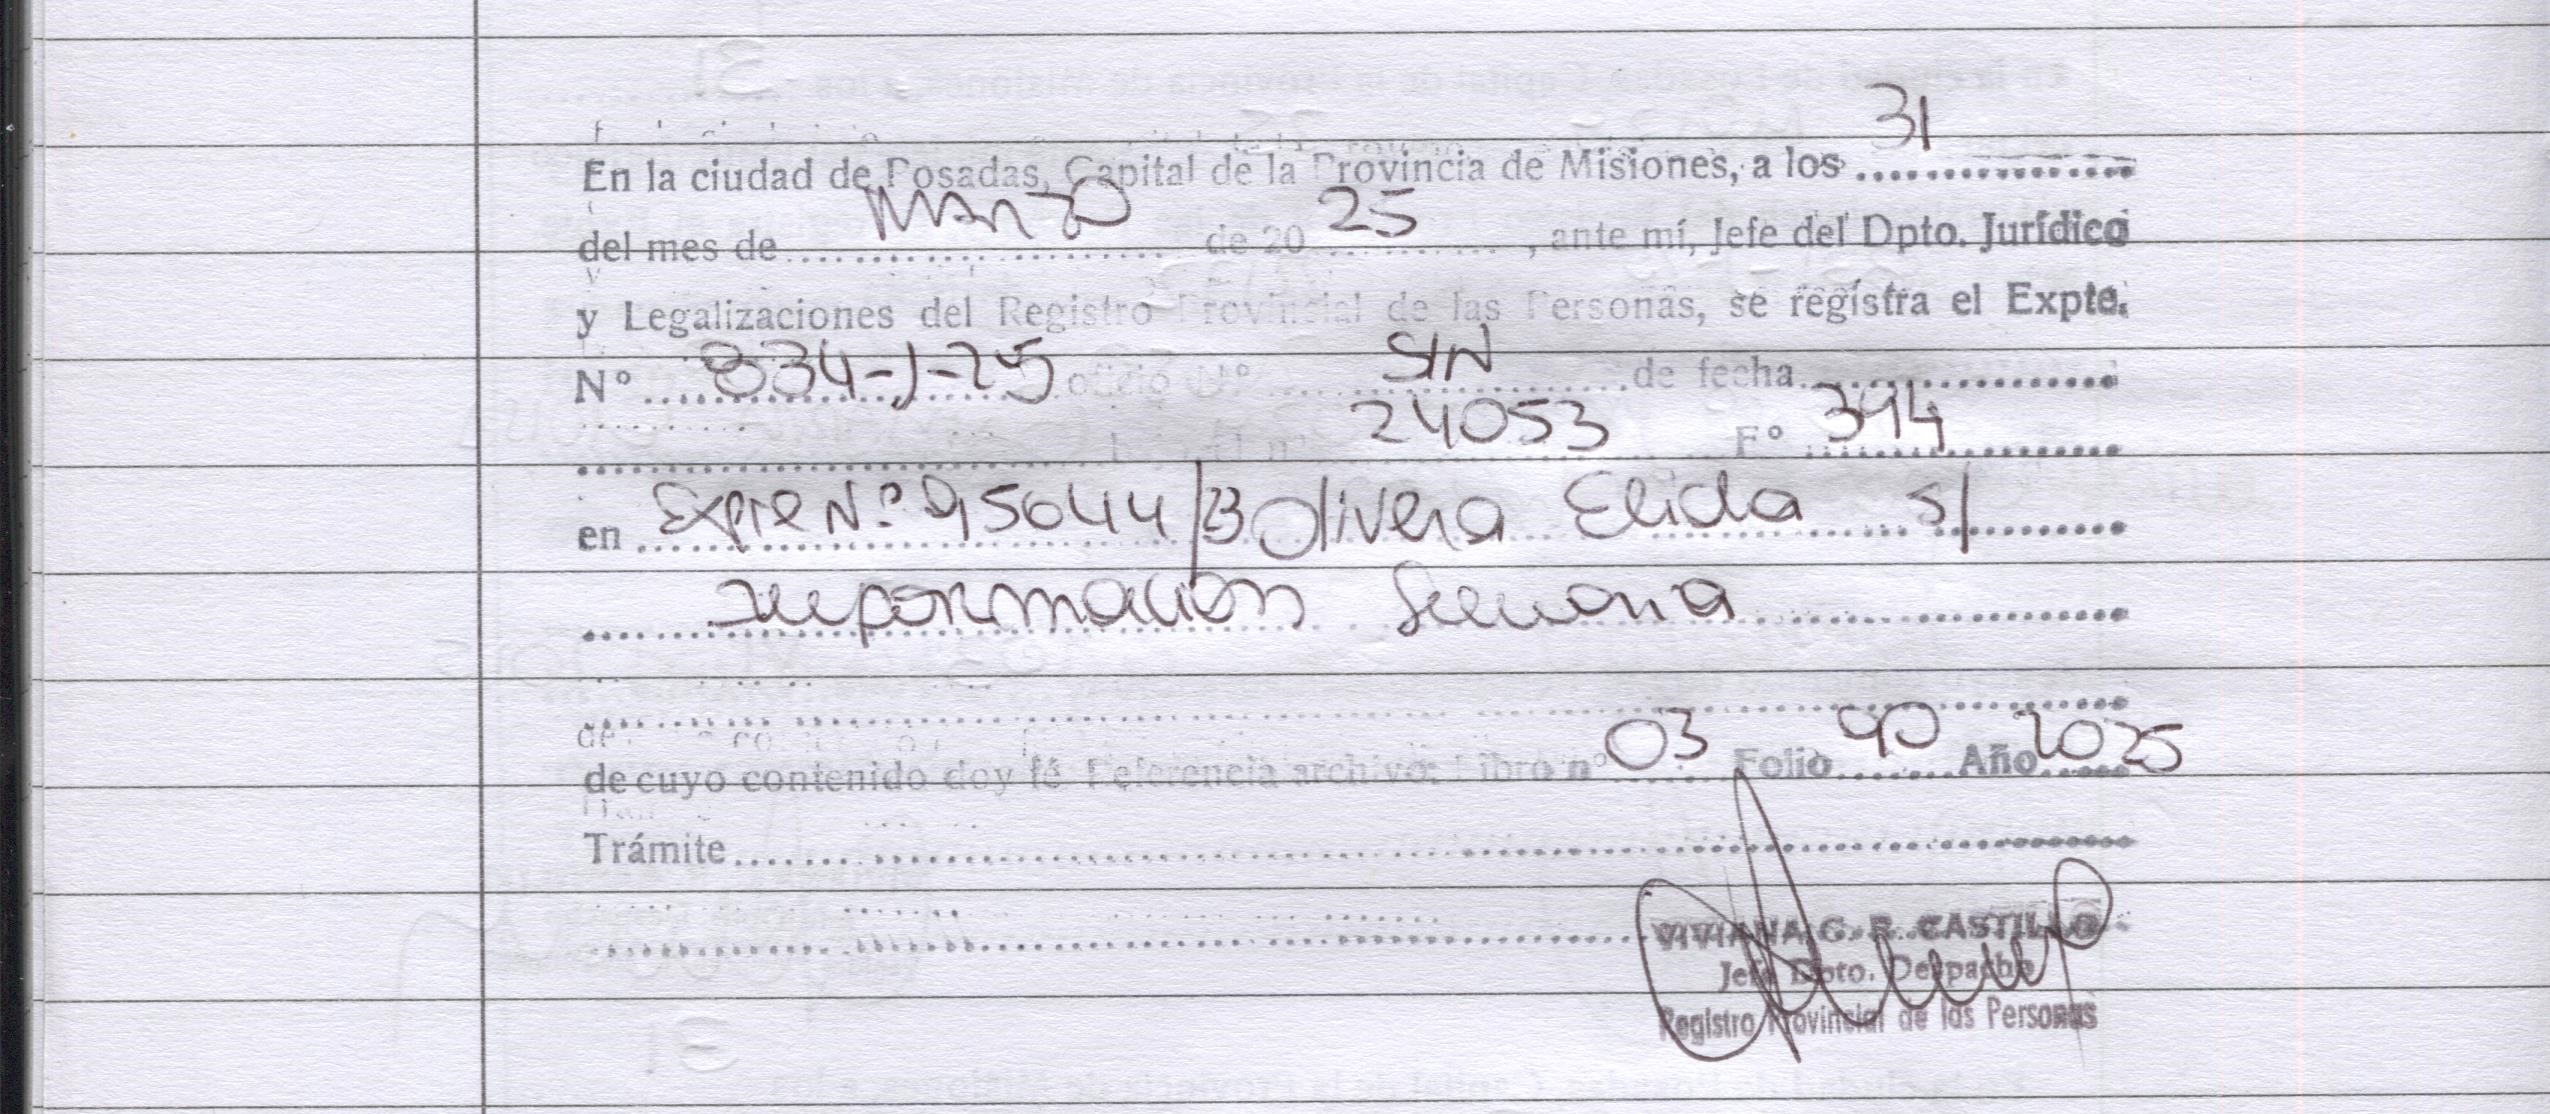 En la ciudad de Posadas, Capital de la Provincia de Misiones, a los 31
del mes de Marzo de 20 25, ante mí, Jefe del Dpto. Jurídico
y Legalizaciones del Registro Provincial de las Personas, se registra el Expte.
Nº 834-J-25 oficio Nº S/N de fecha
24053 Fº 394
en Expte Nº 95644/ Olivera Elida s/
Información Sumaria
de cuyo contenido doy fé Referencia archivo: Libro nº 03 Folio 90 Año 2025
Trámite
VIVIANA G. R. CASTILLO
Jefe Dpto. Despacho
Registro Provincial de las Personas